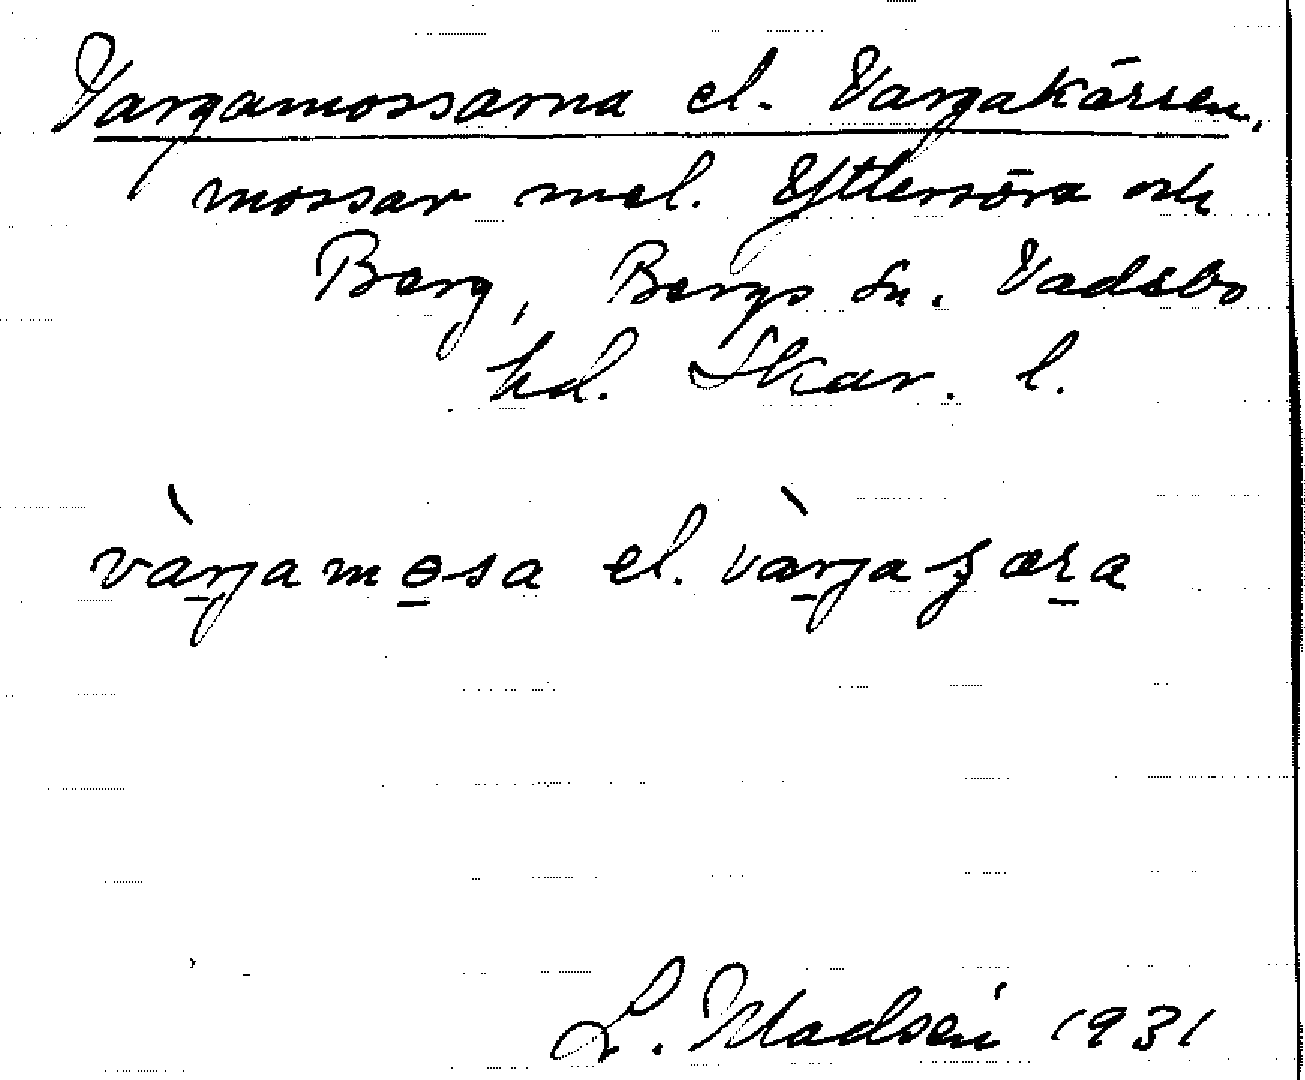 Vargamossarna el. Vargakärren,
mossar mel. Ytterröra och
Berg, Bergs sn. Vadsbo
hd. Skar. l.
vàrjamɵsa el. vàrja ʒæra
L. Madsén 1931